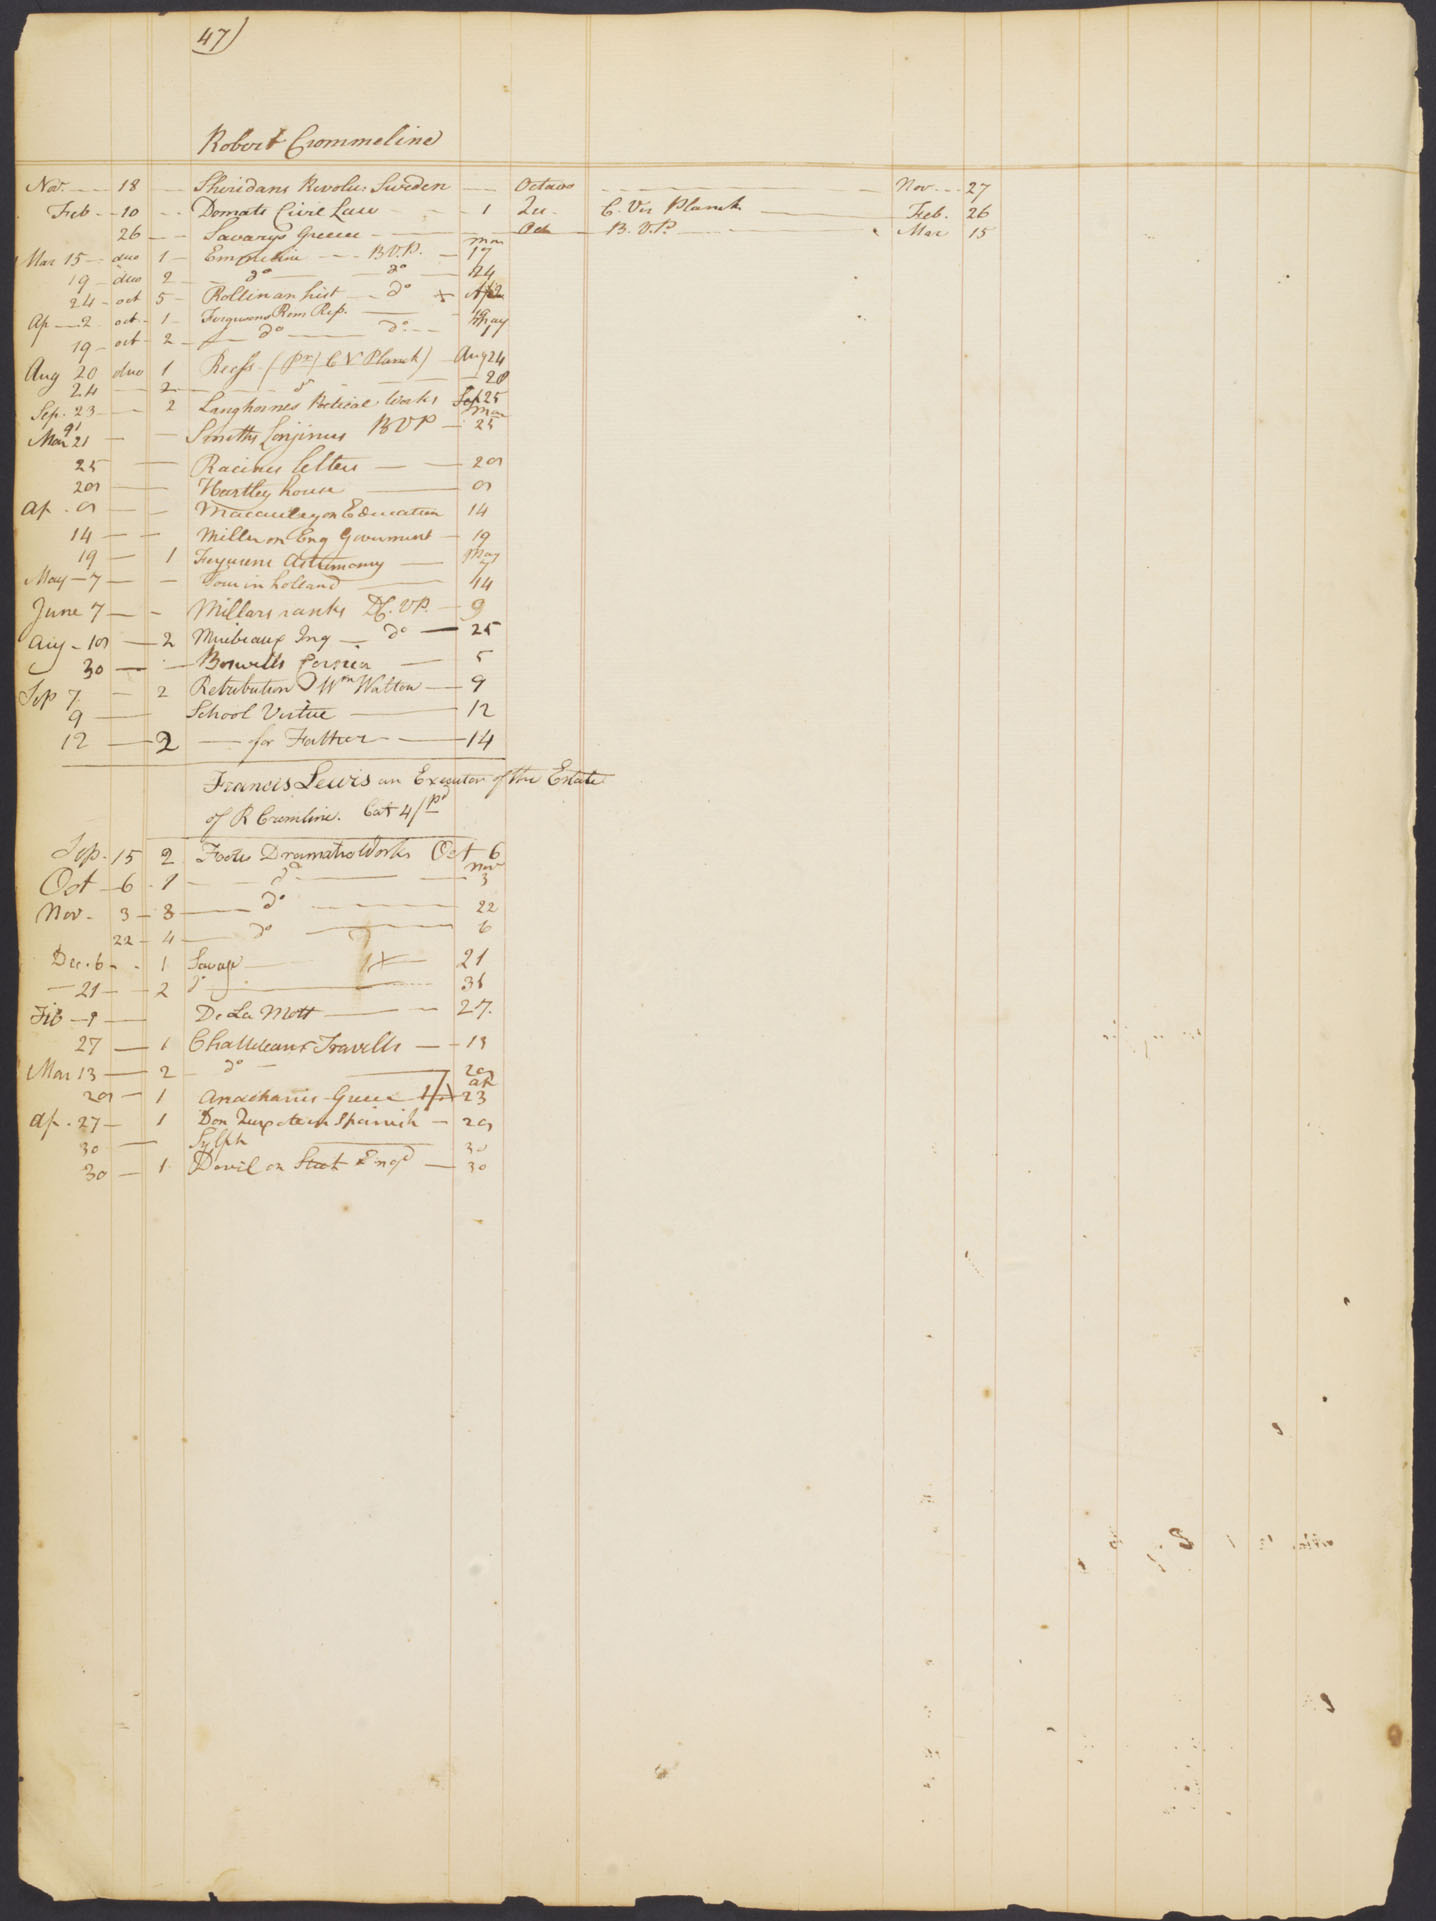 47)
Robert Crommeline
Nov. 18 Sheridans Revolu: Sweden Octavo Nov 27
Feb 10 Domats Civil Law 1 Qu. C. Ver Planck Feb. 26
26 Savarys Greece Oct B. V.P. Mar 15
Mar 15 duo 1 Emmeline B V.P. Mar 17
19 duo 2 do do 24
24 oct 5 Rollin an hist do x Ap 2
Ap 2 oct 1 Fergusons Rom Rep. 19
19 oct 2 do do May 1
Aug 20 duo 1 Recess (pr C V Planck) Aug 24
24 2 do 28
Sep. 23 2 Langhornes Poetical Works Sep 25
91 Mar 21 Smiths Longinus B V P Mar 25
25 Racines letters 29
29 Hartley house 9
Ap. 9 Macauley on Education 14
14 Millar on Eng Goverment 19
19 1 Fergusons Astronomy May 7
May 7 Tour in holland 14
June 7 Millars ranks D.C. VP. 9
Aug 19 2 Mirbeaux Inq do 25
30 Boswells Corsica 5
Sep 7 2 Retribution Wm Walton 9
9 School Virtue 12
12 2 for Father 14
Francis Lewis an Executor of the Estate
of R Cromline. Cat 4/ pd
Sep. 15 2 Footes Dramatic Works Oct 6
Oct 6 1 do Nov 3
Nov. 3 3 do 22
22 4 do 6
Dec. 6 1 Savage 1/x 21
21 2 do 31
Feb 9 De La Mott 27.
27 1 Chatteleaux Travells 13
Mar 13 2 do 29
29 1 Anacharsis Greece 1/x Ap 23
Ap. 27 1 Don Quixote in Spanish 29
30 Sylph 30
30 1 Devil on Stick Engd 30